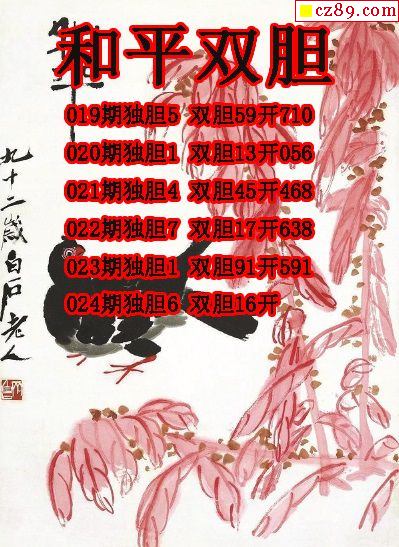 cz89.com
和平双胆
019期独胆5 双胆59开710
020期独胆1 双胆13开056
021期独胆4 双胆45开468
022期独胆7 双胆17开638
023期独胆1 双胆91开591
024期独胆6 双胆16开
九十二歲白石老人